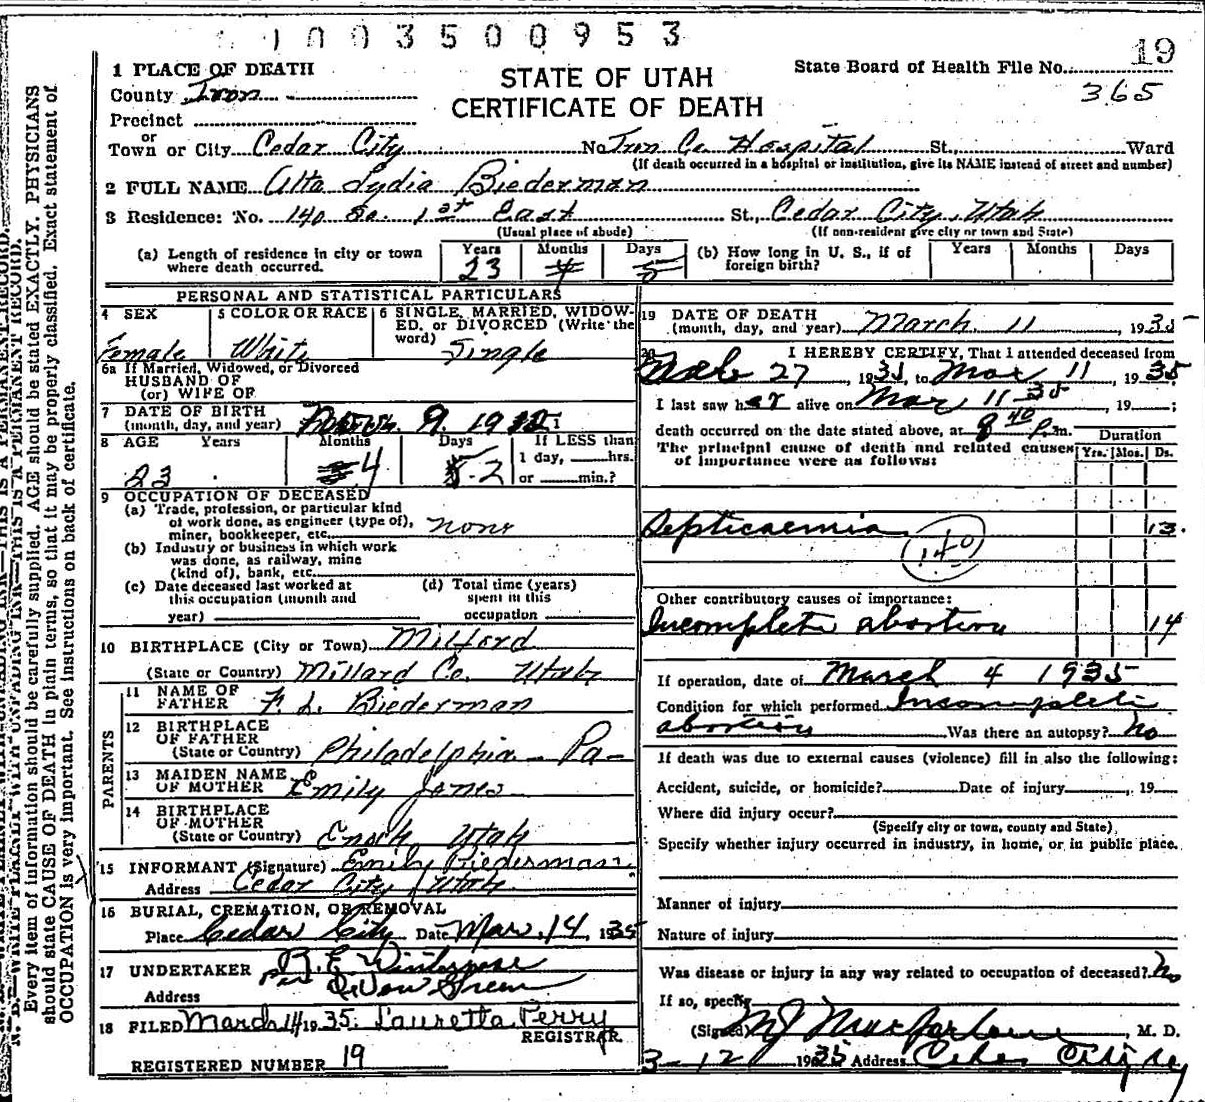 1003500953
19
1 PLACE OF DEATH
STATE OF UTAH
CERTIFICATE OF DEATH
State Board of Health File No.
365
County Iron
Precinct
or
Town or City Cedar City No Iron Co. Hospital St., Ward
(If death occurred in a hospital or institution, give its NAME instead of street and number)
2 FULL NAME Alta Lydia Biederman
3 Residence: No. 140 So. 1st East St., Cedar City, Utah
(Usual place of abode) (If non-resident give city or town and State)
(a) Length of residence in city or town where death occurred. Years 23 Months 4 Days
(b) How long in U. S., if of foreign birth? Years Months Days
PERSONAL AND STATISTICAL PARTICULARS
4 SEX
Female
5 COLOR OR RACE
White
6 SINGLE, MARRIED, WIDOW-
ED, or DIVORCED (Write the
word) Single
6a If Married, Widowed, or Divorced
HUSBAND OF
(or) WIFE OF
7 DATE OF BIRTH
(month, day, and year) 9, 19
8 AGE Years Months Days If LESS than
23 4 2 1 day, hrs.
or min.?
9 OCCUPATION OF DECEASED
(a) Trade, profession, or particular kind
of work done, as engineer (type of),
miner, bookkeeper, etc. none
(b) Industry or business in which work
was done, as railway, mine
(kind of), bank, etc.
(c) Date deceased last worked at
this occupation (month and
year)
(d) Total time (years)
spent in this
occupation
10 BIRTHPLACE (City or Town) Milford
(State or Country) Millard Co. Utah
PARENTS
11 NAME OF
FATHER F. L. Biederman
12 BIRTHPLACE
OF FATHER
(State or Country) Philadelphia Pa
13 MAIDEN NAME
OF MOTHER Emily Jones
14 BIRTHPLACE
OF MOTHER
(State or Country) Enoch Utah
15 INFORMANT (Signature) Emily Biederman
Address Cedar City, Utah
16 BURIAL, CREMATION, OR REMOVAL
Place Cedar City Date Mar. 14, 1935
17 UNDERTAKER
Address
18 FILED March 14 1935. Lauretta Perry
REGISTRAR.
REGISTERED NUMBER 19
19 DATE OF DEATH
(month, day, and year) March 11, 1935
20 I HEREBY CERTIFY, That I attended deceased from
27, 1935, to Mar 11, 1935
I last saw her alive on Mar 11-35, 19 ;
death occurred on the date stated above, at 8 40 P. m.
The principal cause of death and related causes
of importance were as follows:
Duration
Yrs. Mos. Ds.
Septicaemia 13.
140
Other contributory causes of importance:
Incomplete abortion 14
If operation, date of March 4 1935
Condition for which performed Incomplete
abortion Was there an autopsy? No
If death was due to external causes (violence) fill in also the following:
Accident, suicide, or homicide? Date of injury , 19
Where did injury occur?
(Specify city or town, county and State)
Specify whether injury occurred in industry, in home, or in public place.
Manner of injury
Nature of injury
Was disease or injury in any way related to occupation of deceased? No
If so, specify
(Signed) M J Macfarlane, M. D.
3-12 1935 Address Cedar City
N. B.—WRITE PLAINLY WITH UNFADING INK—THIS IS A PERMANENT RECORD.
Every item of information should be carefully supplied. AGE should be stated EXACTLY. PHYSICIANS
should state CAUSE OF DEATH in plain terms, so that it may be properly classified. Exact statement of
OCCUPATION is very important. See instructions on back of certificate.